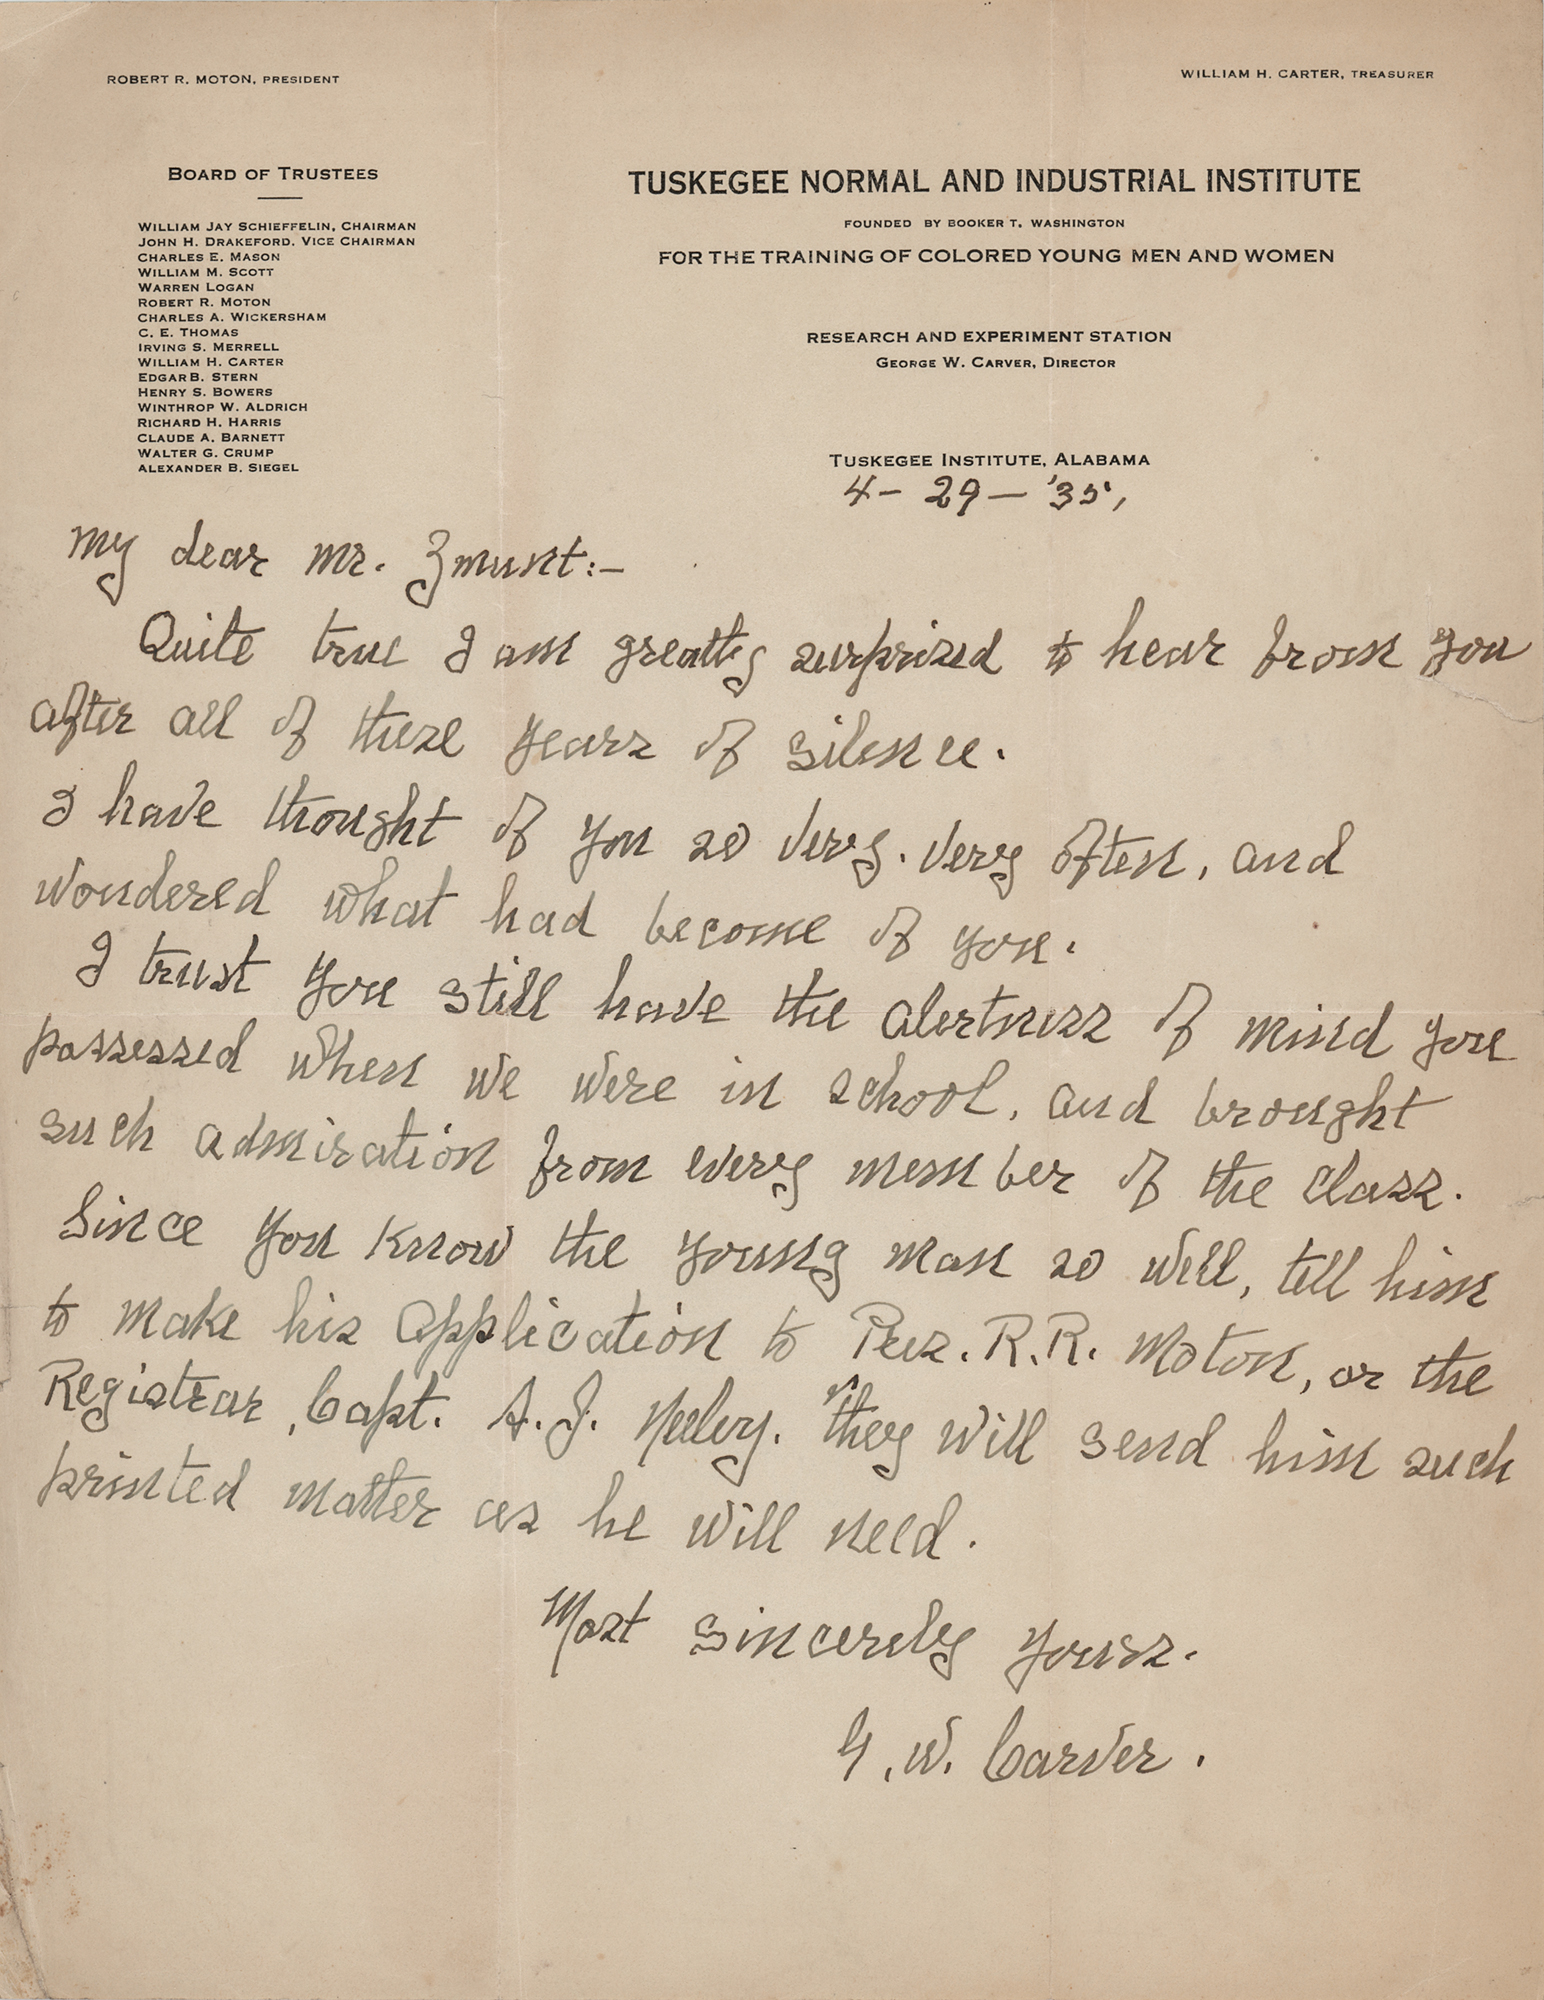 ROBERT R. MOTON, PRESIDENT
WILLIAM H. CARTER, TREASURER
BOARD OF TRUSTEES
WILLIAM JAY SCHIEFFELIN, CHAIRMAN
JOHN H. DRAKEFORD, VICE CHAIRMAN
CHARLES E. MASON
WILLIAM M. SCOTT
WARREN LOGAN
ROBERT R. MOTON
CHARLES A. WICKERSHAM
C. E. THOMAS
IRVING S. MERRELL
WILLIAM H. CARTER
EDGAR B. STERN
HENRY S. BOWERS
WINTHROP W. ALDRICH
RICHARD H. HARRIS
CLAUDE A. BARNETT
WALTER G. CRUMP
ALEXANDER B. SIEGEL
TUSKEGEE NORMAL AND INDUSTRIAL INSTITUTE
FOUNDED BY BOOKER T. WASHINGTON
FOR THE TRAINING OF COLORED YOUNG MEN AND WOMEN
RESEARCH AND EXPERIMENT STATION
GEORGE W. CARVER, DIRECTOR
TUSKEGEE INSTITUTE, ALABAMA
4- 29 - '35,
My dear Mr. Zmunt:-
Quite true I am greatly surprized to hear from you
after all of these years of silence.
I have thought of you so very, very often, and
wondered what had become of you.
I trust you still have the alertness of mind you
possessed when we were in school, and brought
such admiration from every member of the class.
Since you know the young man so well, tell him
to make his application to Pres. R.R. Moton, or the
Registrar, Capt. A. J. Neeley. They will send him such
printed matter as he will need.
Most sincerely yours.
G. W. Carver.